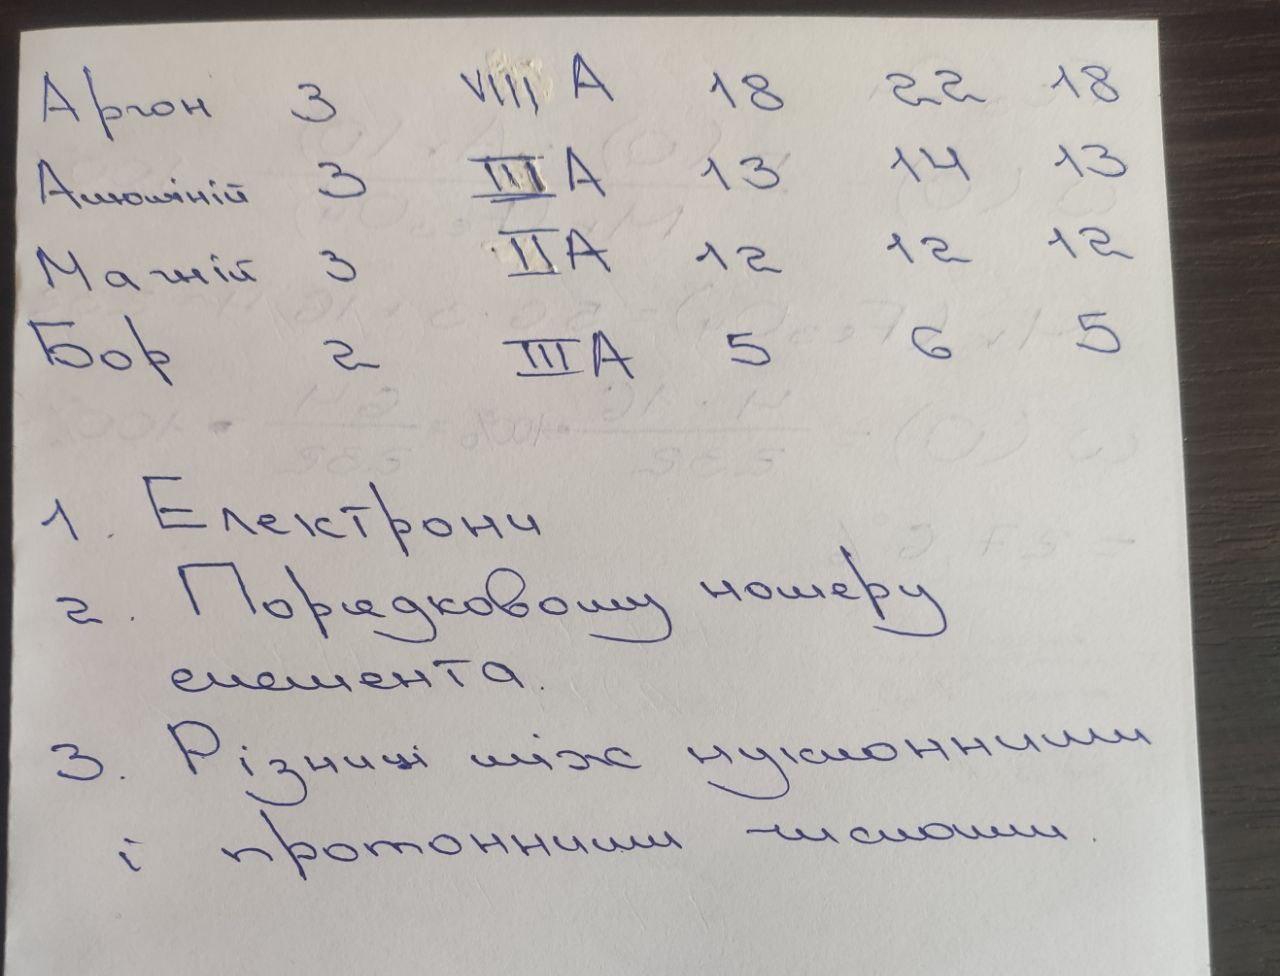 Аргон 3 VIII А 18 22 18
Алюміній 3 III А 13 14 13
Магній 3 II А 12 12 12
Бор 2 III А 5 6 5
1. Електрони
2. Порядковому номеру
елемента.
3. Різниці між нуклонними
і протонними числами.